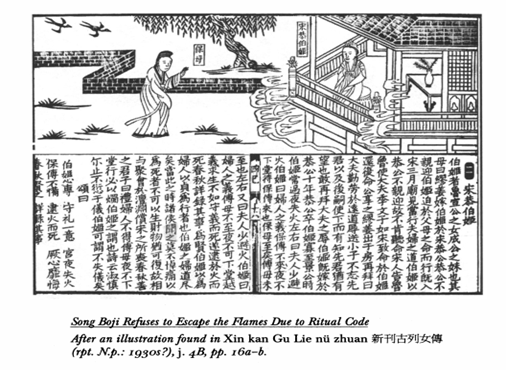 宋恭伯姬
保母
宋恭伯姬
伯姬者魯宣公之女成公之妹也其
母曰繆姜嫁伯姬於宋恭公恭公不
親迎伯姬迫於父母之命而行既入
宋三月廟見當行夫婦之道伯姬以
恭公不親迎故不肯聽命宋人告魯
魯使大夫季文子如宋致命於伯姬
還復命公享之繆姜出于房再拜曰
大夫勤勞於遠道辱送小子不忘先
君以及後嗣使下而有知先君猶有
望也敢再拜大夫之辱伯姬既嫁於
恭公十年恭公卒伯姬寡至景公時
伯姬嘗遇夜失火左右曰夫人少避
火伯姬曰婦人之義保傅不俱夜不
下堂待保傅來也保母至矣傅母未
至也左右又曰夫人少避火伯姬曰
婦人之義傅母不至夜不可下堂越
義求生不如守義而死遂逮於火而
死春秋詳錄其事為賢伯姬以為
婦人以貞為行者也伯姬之婦道盡
矣當此之時諸侯聞之莫不悼痛以
為死者不可以生財物猶可復故相
與聚會於澶淵償宋之所喪春秋善
之君子曰禮婦人不得傅母夜不下
堂行必以燭伯姬之謂也詩云淑慎
尔止不愆于儀伯姬可謂不失儀矣
頌曰
伯姬心專 守禮一意 宮夜失火
保傅不備 逮火而死 厥心靡悔
春秋賢之 詳錄其事
Song Boji Refuses to Escape the Flames Due to Ritual Code
After an illustration found in Xin kan Gu Lie nü zhuan 新刊古列女傳
(rpt. N.p.: 1930s?), j. 4B, pp. 16a–b.